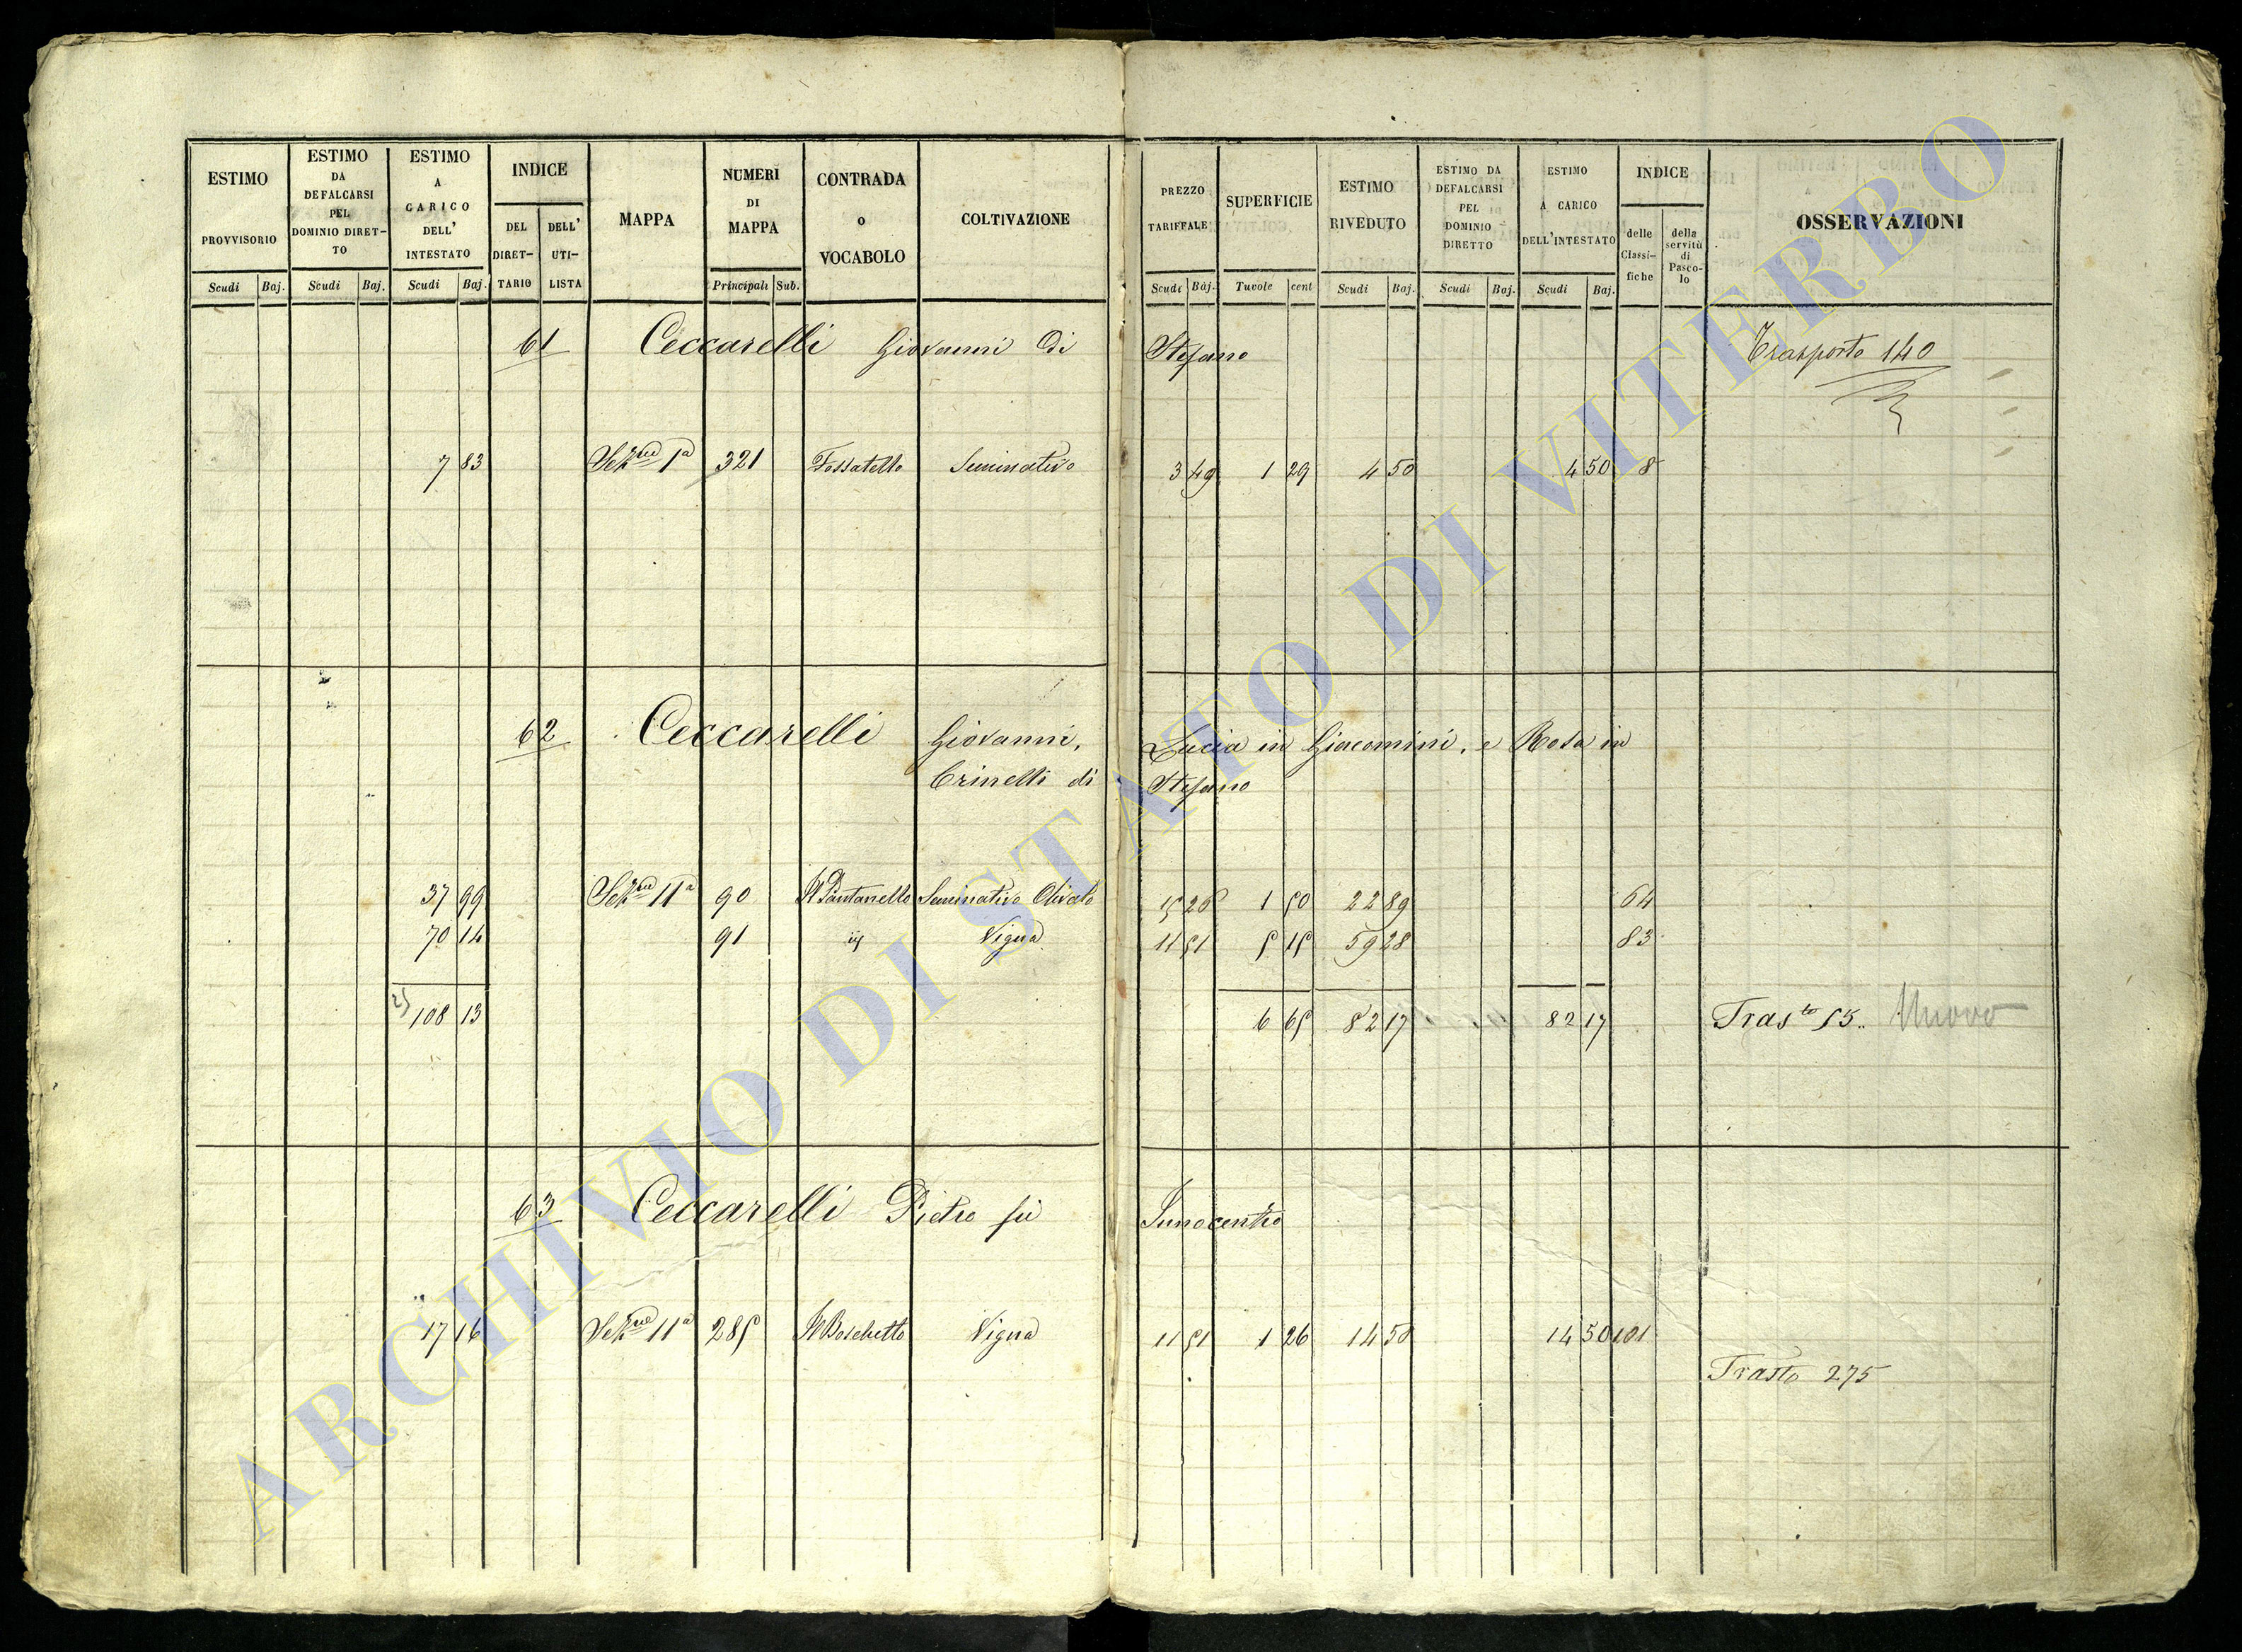 ESTIMO PROVVISORIO
Scudi Baj.
ESTIMO DA DEFALCARSI PEL DOMINIO DIRET-TO
Scudi Baj.
ESTIMO A CARICO DELL' INTESTATO
Scudi Baj.
INDICE
DEL DIRET-TARIO
DELL' UTI-LISTA
MAPPA
NUMERI DI MAPPA
Principali Sub.
CONTRADA o VOCABOLO
COLTIVAZIONE
PREZZO TARIFFALE
Scudi Baj.
SUPERFICIE
Tavole cent
ESTIMO RIVEDUTO
Scudi Baj.
ESTIMO DA DEFALCARSI PEL DOMINIO DIRETTO
Scudi Baj.
ESTIMO A CARICO DELL'INTESTATO
Scudi Baj.
INDICE
delle Classi-fiche
della servitù di Pasco-lo
OSSERVAZIONI
61 Ceccarelli Giovanni di Stefano Trasporto 140
7 83 Sez.ne 1a 321 Fossatello Seminativo 3 49 1 29 4 50 4 50 8
62 Ceccarelli Giovanni, Lucia in Giacomini, e Rosa in
Crinelli di Stefano
37 99 Sez.ne 11a 90 Pantanello Seminativo Olivato 15 26 1 50 22 89 64
70 14 91 Vigna 11 51 5 15 59 28 83
108 13 6 65 82 17 82 17 Tras.to 53 Nuovo
63 Ceccarelli Pietro fu Innocenzo
17 16 Sez.ne 11a 285 Il Boschetto Vigna 11 51 1 26 14 50 14 50 101
Trasto 275
ARCHIVIO DI STATO DI VITERBO